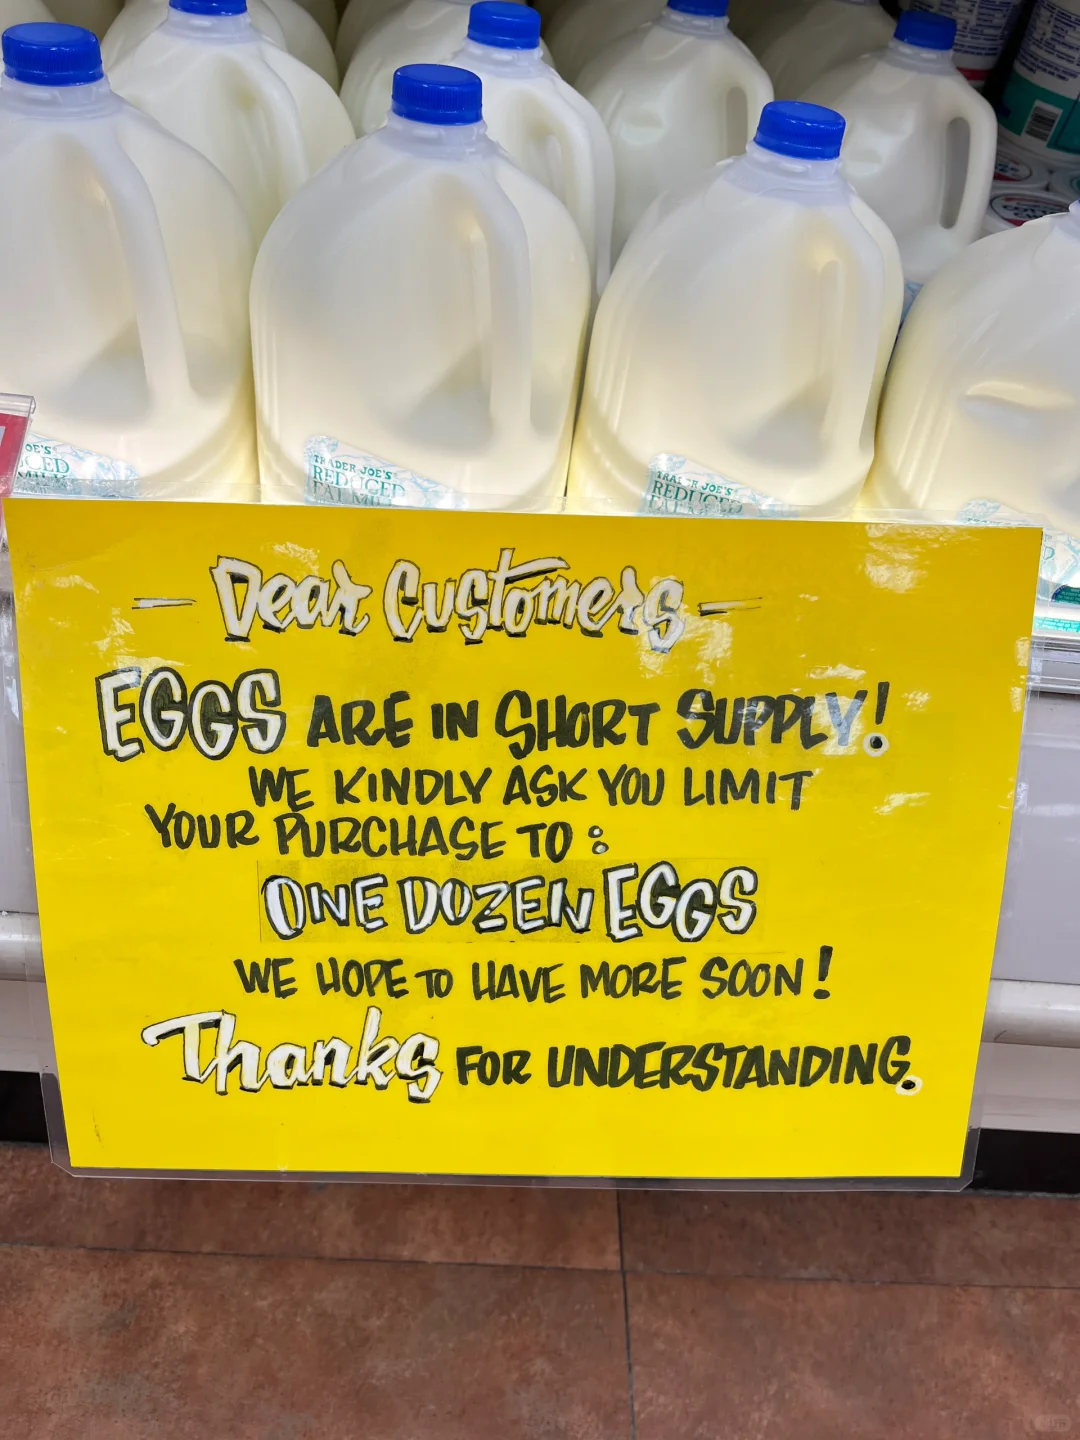 TRADER JOE'S
REDUCED
FAT MILK
TRADER JOE'S
REDUCED
FAT MILK
— Dear Customers —
EGGS ARE IN SHORT SUPPLY!
WE KINDLY ASK YOU LIMIT
YOUR PURCHASE TO:
ONE DOZEN EGGS
WE HOPE TO HAVE MORE SOON!
Thanks FOR UNDERSTANDING.